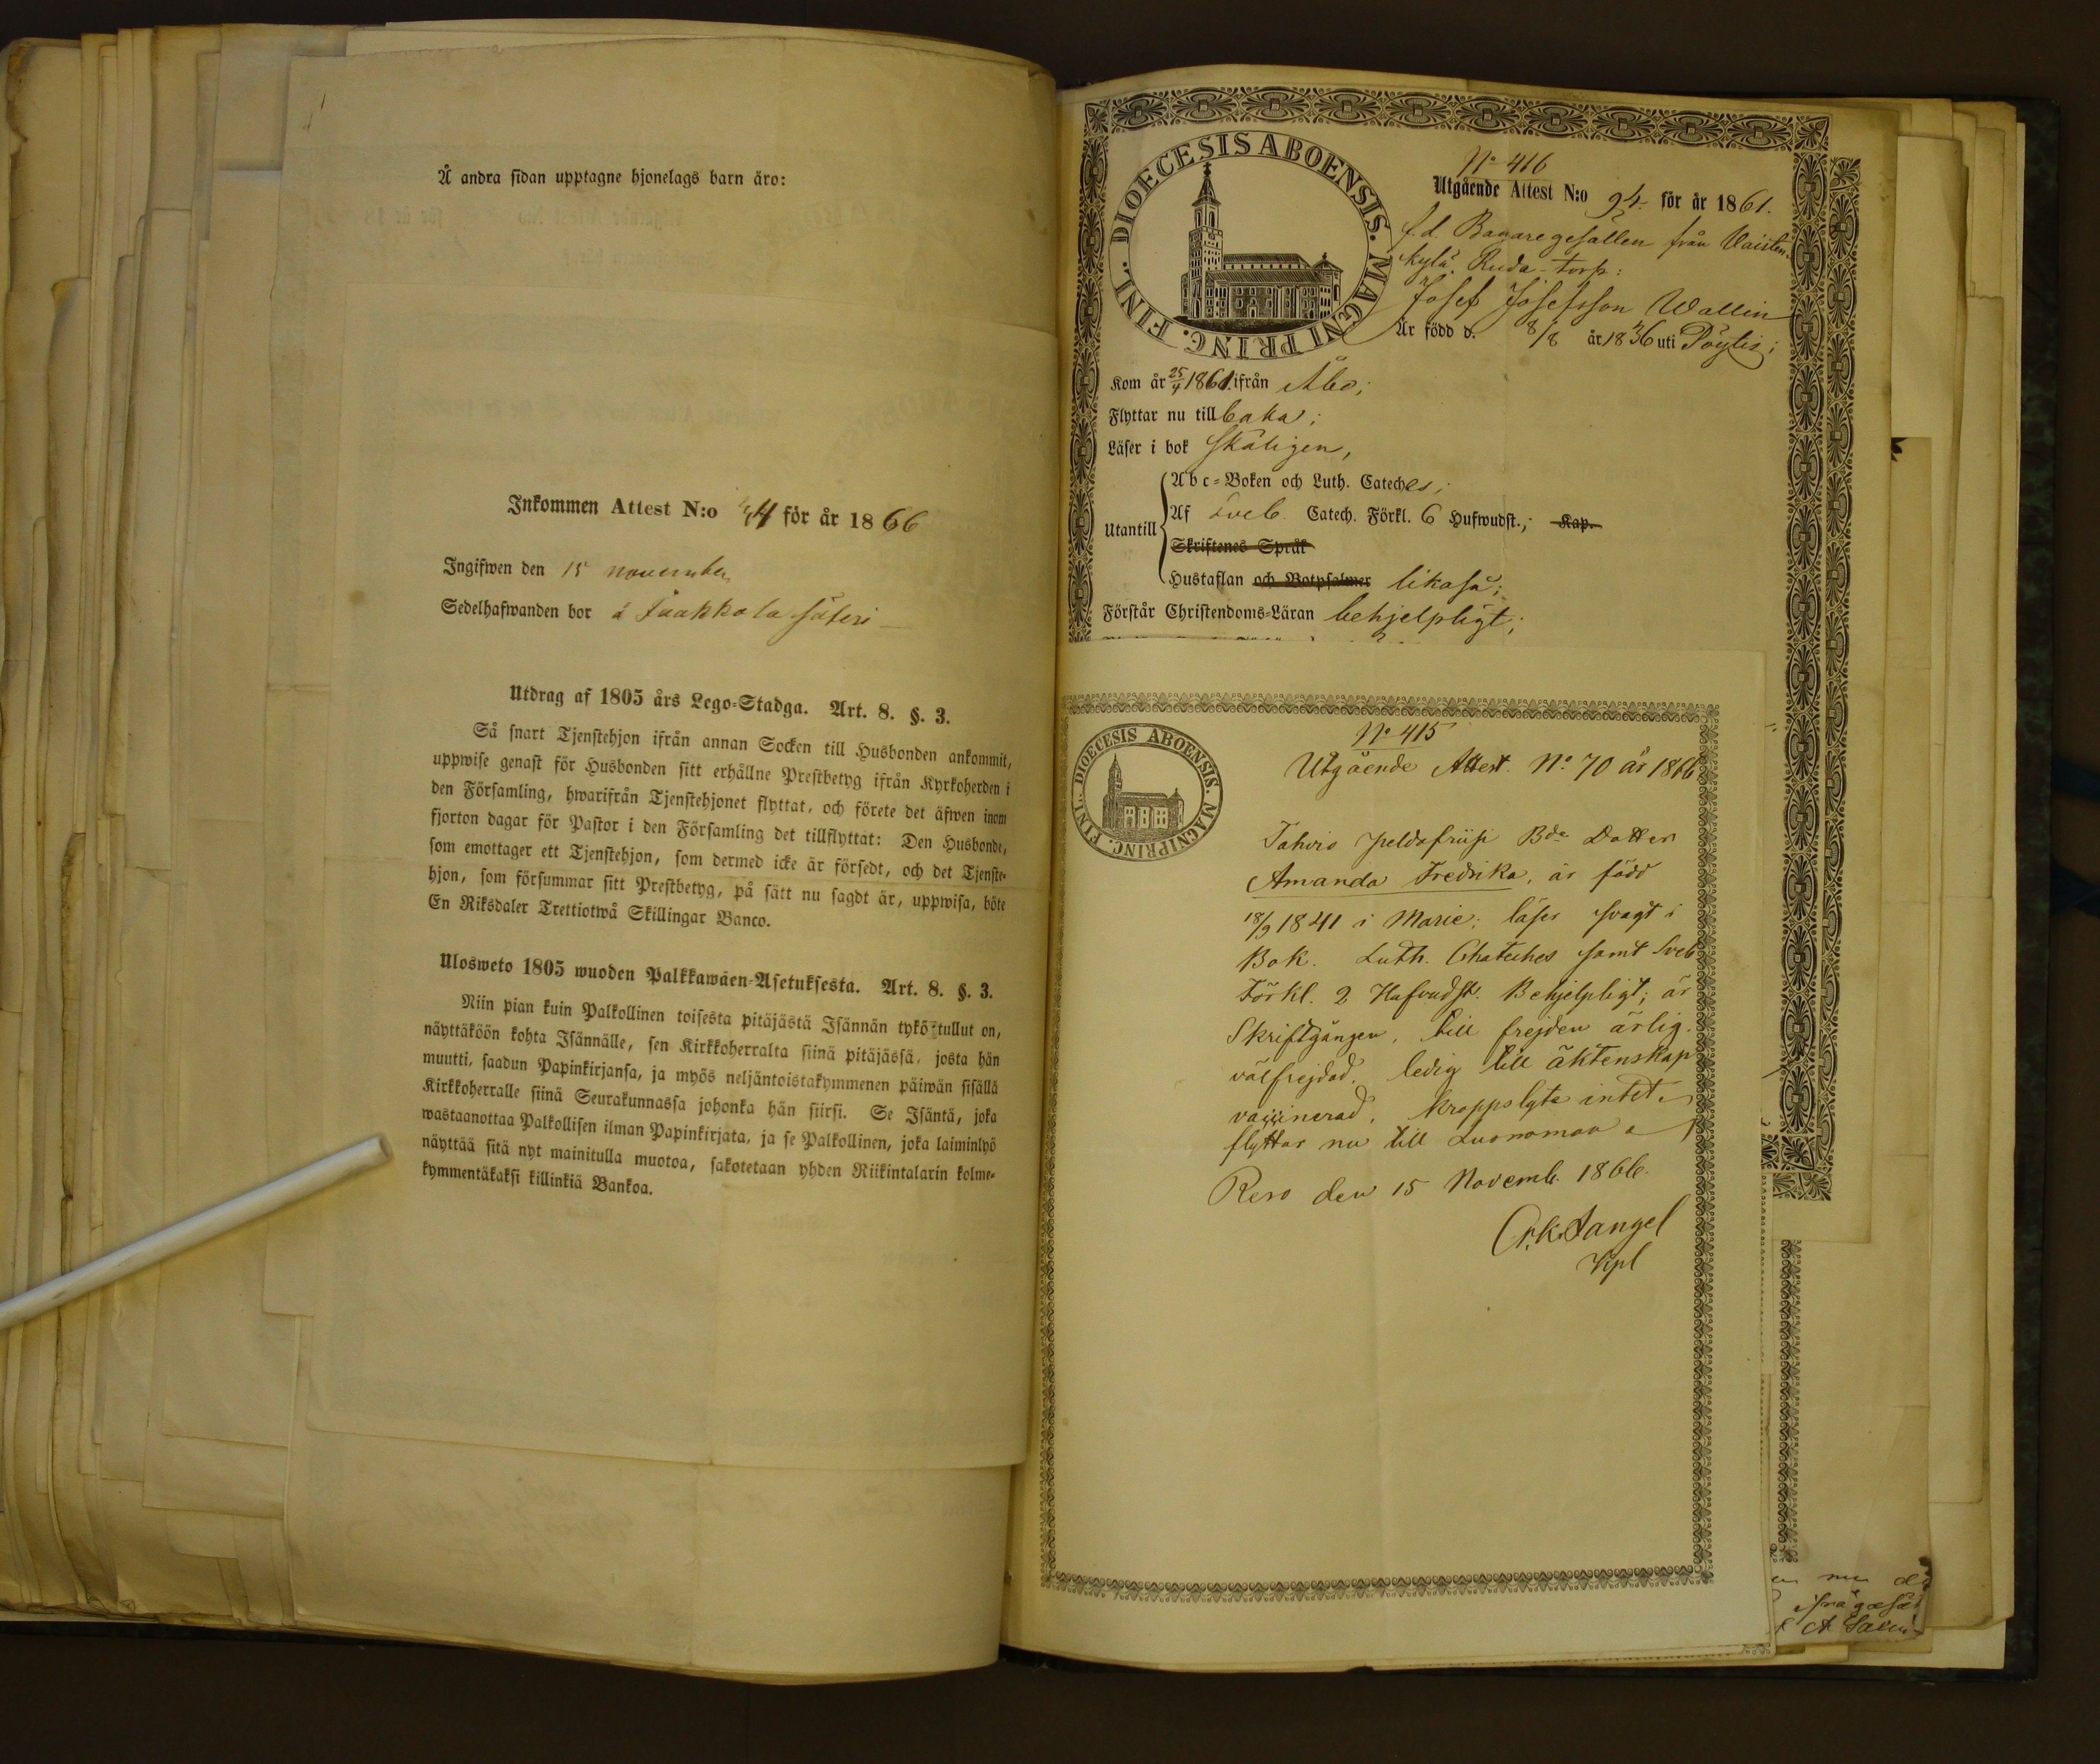 Å andra sidan upptagne hjonelags barn äro:
Inkommen Attest N:o 44 för år 1866
Ingifwen den 15 november
Sedelhafwanden bor å säteri
Utdrag af 1805 års Lego-Stadga. Art. 8. §. 3.
Så snart Tjenstehjon ifrån annan Socken till Husbonden ankommit,
uppwise genast för Husbonden sitt erhållne Prestbetyg ifrån Kyrkoherden i
den Församling, hwarifrån Tjenstehjonet flyttat, och förete det äfwen inom
fjorton dagar för Pastor i den Församling det tillflyttat: Den Husbonde,
som emottager ett Tjenstehjon, som dermed icke är försedt, och det Tjenste-
hjon, som försummar sitt Prestbetyg, på sätt nu sagdt är, uppwisa, böte
En Riksdaler Trettiotwå Skillingar Banco.
Ulosweto 1805 wuoden Palkkawäen-Asetuksesta. Art. 8. §. 3.
Niin pian kuin Palkollinen toisesta pitäjästä Isännän tykö-tullut on,
näyttäköön kohta Isännälle, sen Kirkkoherralta siinä pitäjässä, josta hän
muutti, saadun Papinkirjansa, ja myös neljäntoistakymmenen päiwän sisällä
Kirkkoherralle siinä Seurakunnassa johonka hän siirsi. Se Isäntä, joka
wastaanottaa Palkollisen ilman Papinkirjata, ja se Palkollinen, joka laiminlyö
näyttää sitä nyt mainitulla muotoa, sakotetaan yhden Riikintalarin kolme-
kymmentäkaksi killinkiä Bankoa.
DIOECESIS ABOENSIS. MAGNI PRINC. FINL.
No 416
Utgående Attest N:o 94 för år 1861.
f.d. Bagaregesällen från Vaisten-
kylä Ruda-torp:
Josef Josefsson Wallin
Är född d. 8/8 år 1836 uti Pöytis;
Kom år 25/4 1861 ifrån Åbo;
Flyttar nu tillbaka;
Läser i bok skäligen,
Utantill
Abc-Boken och Luth. Cateches;
Af Sveb. Catech. Förkl. 6 Hufwudst.; Kap.
Skriftenes Språk
Hustaflan och Botpsalmer likaså;
Förstår Christendoms-Läran behjelpligt;
DIOECESIS ABOENSIS. MAGNI PRINC. FINL.
No 415
Utgående Attest. No 70 år 1866
Tahvio Bda Dotter
Amanda Fredrika, är född
18/9 1841 i Marie; läser svagt i
Bok. Luth. Chateches samt Sveb
Förkl. 2 Hufvudst. Behjelpligt; är
Skriftgången, till frejden ärlig.
välfrejdad. ledig till äktenskap
vaccinerad, kroppslyte intet.
flyttar nu till
Reso den 15 Novemb. 1866.
Kpl